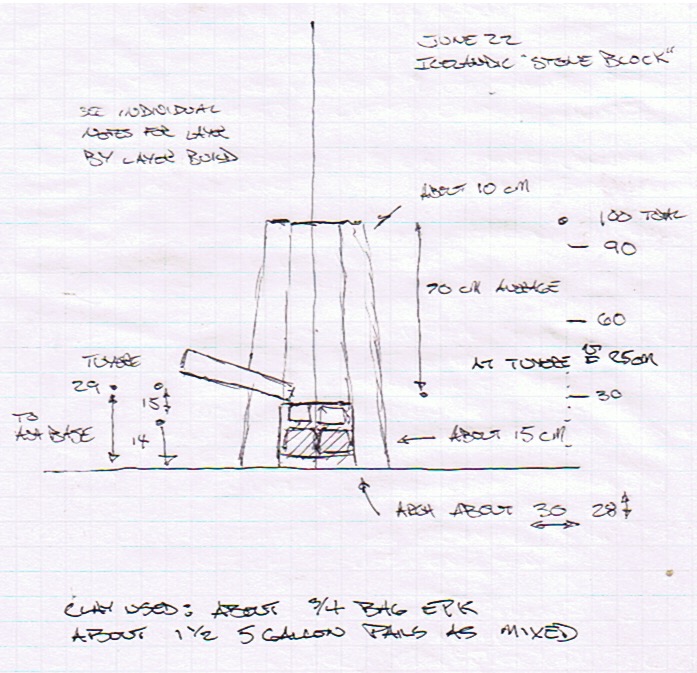 JUNE 22
ICELANDIC "STONE BLOCK"
SEE INDIVIDUAL
NOTES FOR LAYER
BY LAYER BUILD
ABOUT 10 CM
100 TOTAL
90
70 CM AVERAGE
60
AT TUYERE Ø 25CM
TUYERE
29
15
30
TO
ASH BASE
14
ABOUT 15 CM
ARCH ABOUT 30 28
CLAY USED: ABOUT 3/4 BAG EPK
ABOUT 1 1/2 5 GALLON PAILS AS MIXED